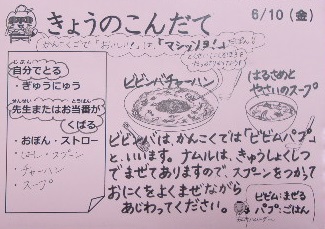 きょうのこんだて
6/10(金)
かんこくごで「おいしい!」は、「マシッソヨ!」
じぶん
自分でとる
・ぎゅうにゅう
せんせい とうばん
先生またはお当番が
くばる
・おぼん・ストロー
・はし・スプーン
・チャーハン
・スープ
ビビンバチャーハン
はるさめと
やさいのスープ
ビビンバは、かんこくでは「ビビムパプ」
と、いいます。ナムルは、きゅうしょくしつ
でまぜてありますので、スプーンをつかって
おにくをよくまぜながら
あじわってください。
ビビム:まぜる
パプ:ごはん